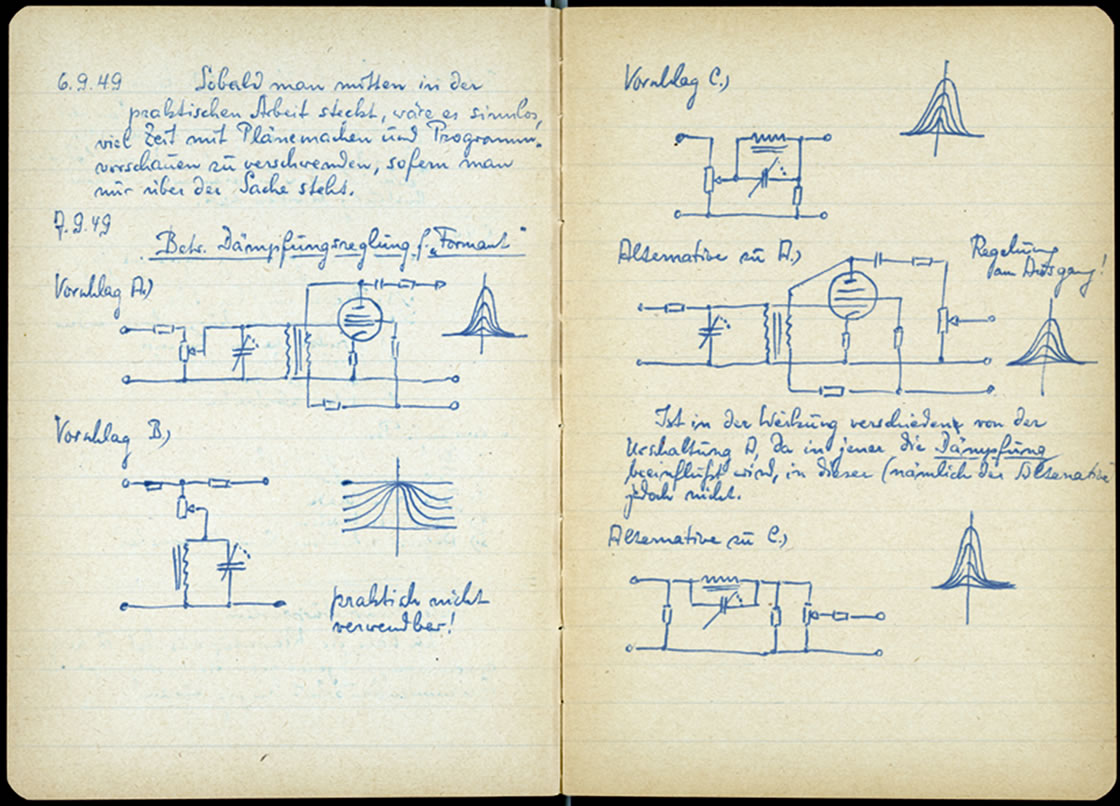 6.9.49 Sobald man mitten in der
praktischen Arbeit steckt, wäre es sinnlos,
viel Zeit mit Plänemachen und Programm-
vorschauen zu verschwenden, sofern man
nur über der Sache steht.
7.9.49
Betr. Dämpfungsreglung f. „Formant"
Vorschlag A.)
Vorschlag B.)
praktisch nicht
verwendbar!
Vorschlag C.)
Alternative zu A.)
Regelung
am Ausgang!
Ist in der Wirkung verschieden von der
Urschaltung A, da in jener die Dämpfung
beeinflußt wird, in dieser (nämlich der Alternative
jedoch nicht.
Alternative zu C.)